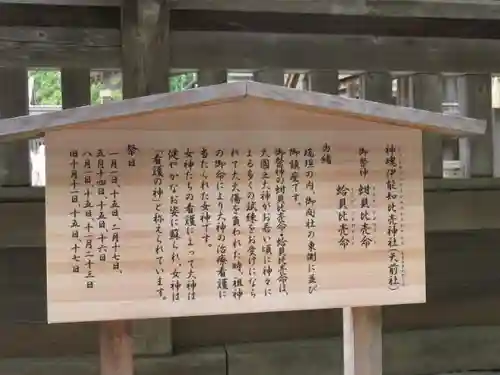 神魂伊能知比売神社(天前社)
御祭神 蚶貝比売命
蛤貝比売命
由緒
瑞垣の内、御向社の東側に並び
御鎮座です。
御祭神の蚶貝比売命・蛤貝比売命は、
大国主大神がお若い頃に神々に
よる多くの試練をお受けになら
れて大火傷を負われた時、祖神
の御命により大神の治療看護に
当たられた女神です。
女神たちの看護によって大神は
健やかなお姿に蘇られ、女神は
「看護の神」と称えられています。
祭日
一月一日、十五日、二月十七日、
五月十四日、十五日、十六日
八月一日、十五日、十一月二十三日
旧十月十一日、十五日、十七日